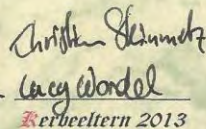 Christian Steinmetz
Lucy Wordel
Kerbeeltern 2013